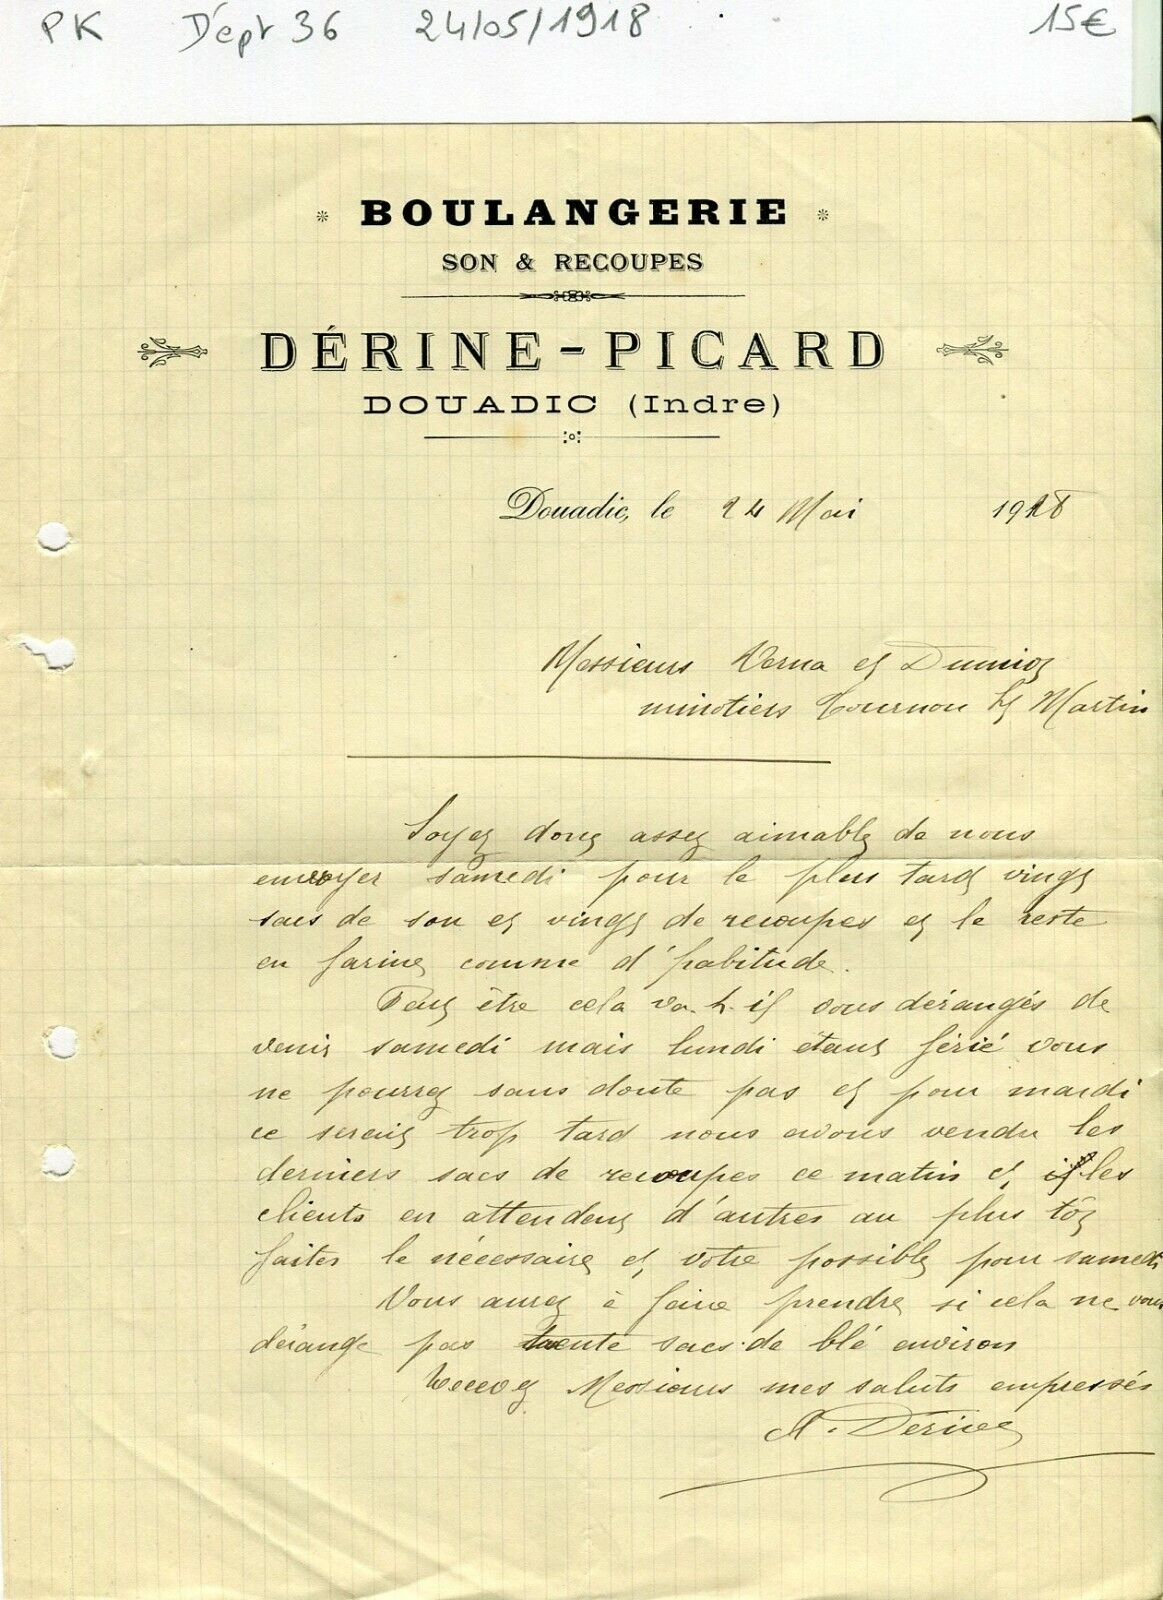 PK Dépt 36 24/05/1918 15€
BOULANGERIE
SON & RECOUPES
DÉRINE-PICARD
DOUADIC (Indre)
Douadic, le 24 Mai 1928
Messieurs Verna et
minotiers Tournon St Martin
Soyez donc assez aimable de nous
envoyer samedi pour le plus tard vingt
sacs de son et vingt de recoupes et le reste
en farine comme d'habitude.
Peut être cela va-t-il vous dérangés de
venir samedi mais lundi étant férié vous
ne pourrez sans doute pas et pour mardi
ce serait trop tard nous avons vendu les
derniers sacs de recoupes ce matin et les
clients en attendent d'autres au plus tôt
faites le nécessaire et votre possible pour samedi
Vous aurez à faire prendre si cela ne vous
dérange pas trente sacs de blé environ
Recevez Messieurs mes saluts empressés
A. Dérine